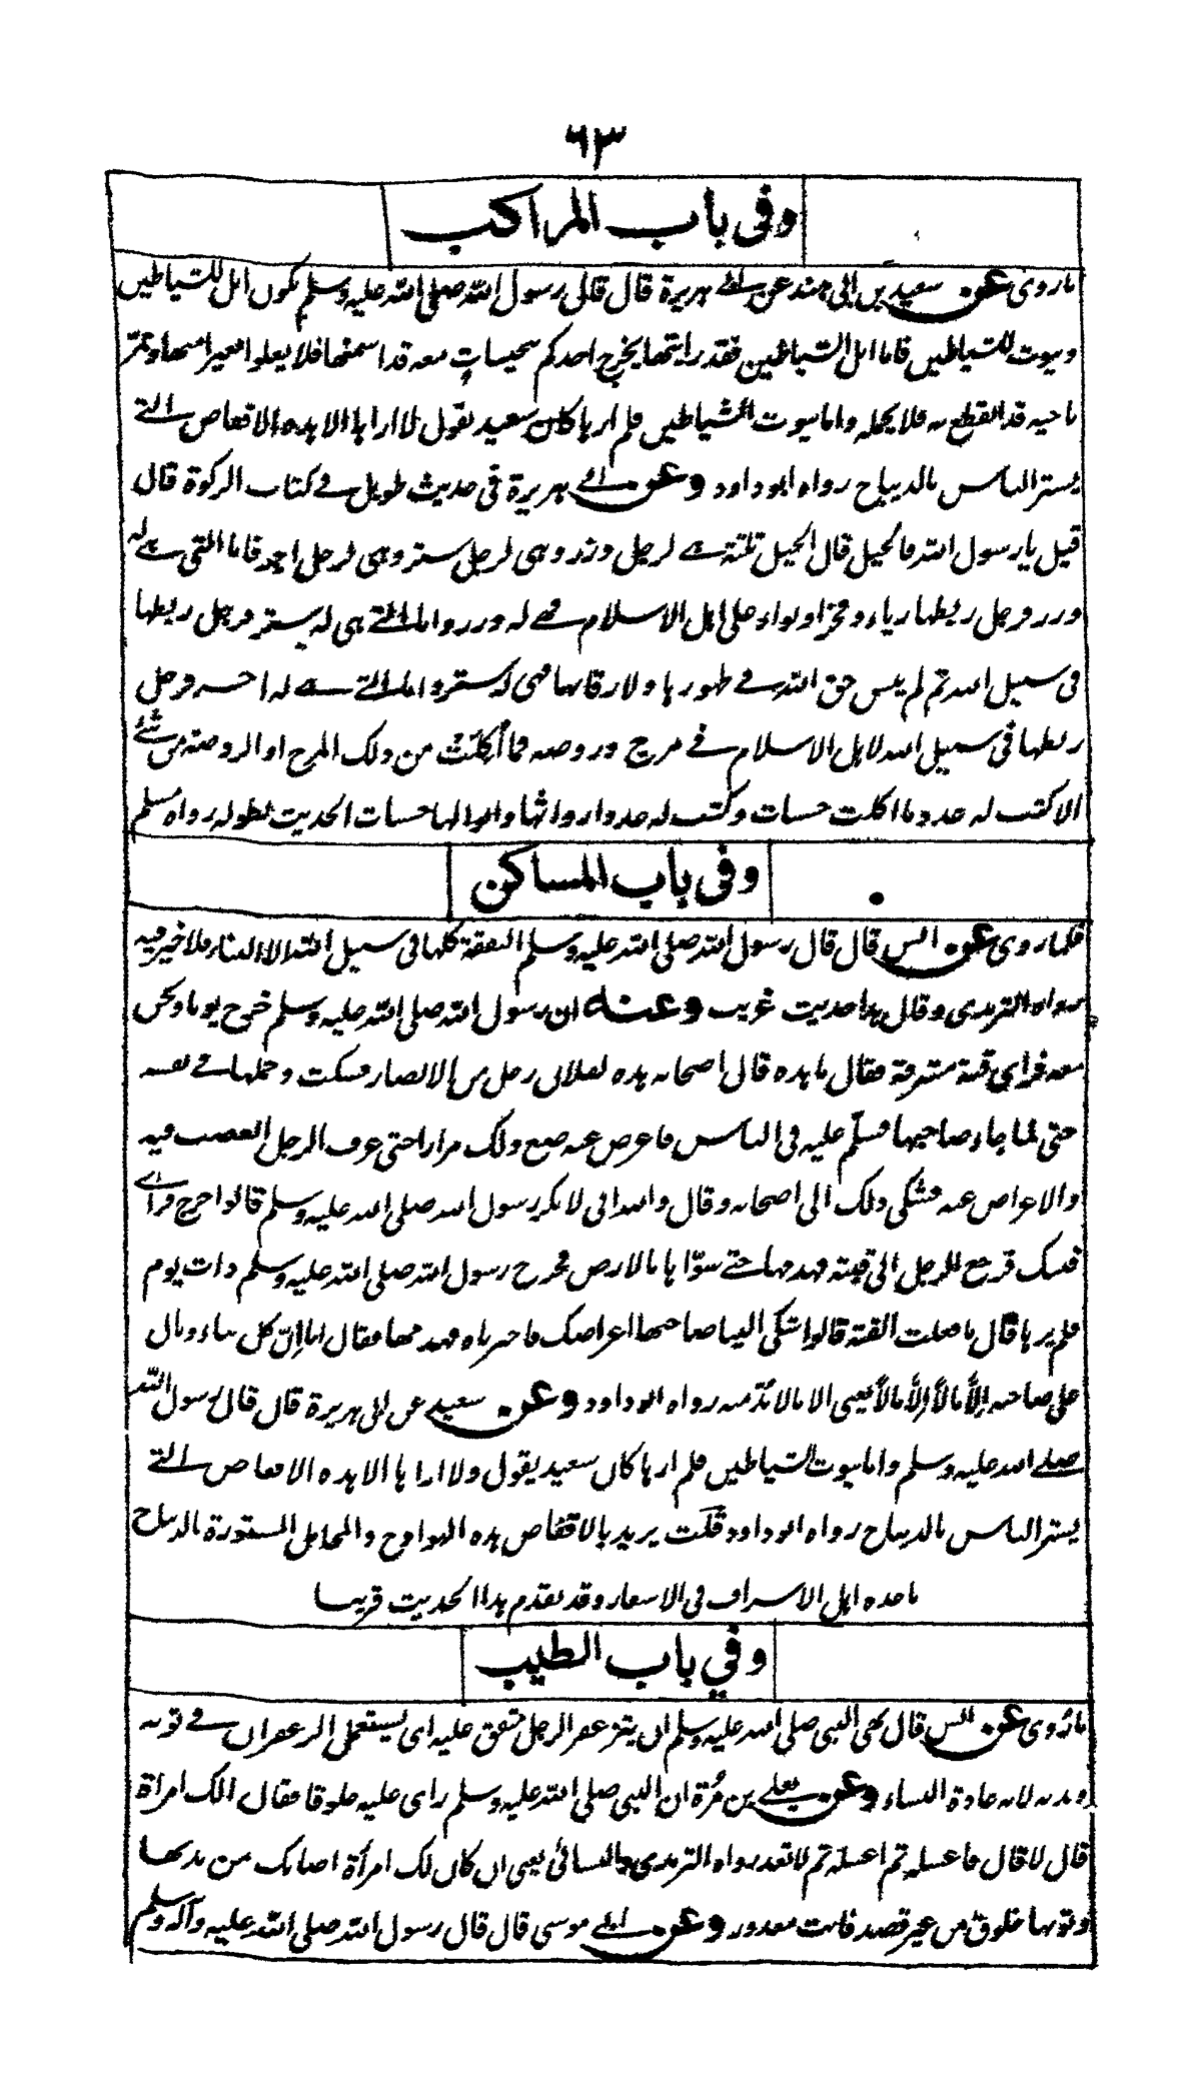 ٦٣
وفى باب المراكب
ماروى عن سعيد بن ابى هند عن ابى هريرة قال قال رسول الله صلى الله عليه وسلم تكون ابل للشياطين
وبيوت للشياطين فاما ابل الشياطين فقد رايتها يخرج احدكم بنجيبات معه قد اسمنها فلا يعلو بعيرا منها ويمر
باخيه قد انقطع به فلا يحمله واما بيوت الشياطين فلم ارها كان سعيد يقول لا اراها الا هذه الاقفاص التى
يستر الناس بالديباج رواه ابو داود وعن ابى هريرة فى حديث طويل فى كتاب الزكوة قال
قيل يا رسول الله فالخيل قال الخيل ثلثة هى لرجل وزر وهى لرجل ستر وهى لرجل اجر فاما التى هى له
وزر فرجل ربطها رياء وفخرا ونواء على اهل الاسلام فهى له وزر واما التى هى له ستر فرجل ربطها
فى سبيل الله ثم لم ينس حق الله فى ظهورها ولا رقابها فهى له ستر واما التى هى له اجر فرجل
ربطها فى سبيل الله لاهل الاسلام فى مرج وروضه فما أكلت من ذلك المرج او الروضة من شئ
الا كتب له عدد ما اكلت حسنات وكتب له عدد ارواثها وابوالها حسنات الحديث بطوله رواه مسلم
وفى باب المساكن
فلما روى عن انس قال قال رسول الله صلى الله عليه وسلم النفقة كلها فى سبيل الله الا البناء فلا خير فيه
رواه الترمذى وقال هذا حديث غريب وعنه ان رسول الله صلى الله عليه وسلم خرج يوما ونحن
معه فراى قبة مشرفة فقال ما هذه قال اصحابه هذه لفلان رجل من الانصار فسكت وحملها فى نفسه
حتى لما جاء صاحبها فسلّم عليه فى الناس فاعرض عنه صنع ذلك مرارا حتى عرف الرجل الغضب فيه
والاعراض عنه فشكى ذلك الى اصحابه وقال والله انى لانكر رسول الله صلى الله عليه وسلم قالوا خرج فراى
قبتك فرجع الرجل الى قبته فهدمها حتى سوّاها بالارض فخرج رسول الله صلى الله عليه وسلم ذات يوم
فلم يرها قال ما فعلت القبة قالوا شكى الينا صاحبها اعراضك فاخبرناه فهدمها فقال اما ان كل بناء وبال
على صاحبه الا مالا الا مالا يعنى الا مالا بدّ منه رواه ابو داود وعن سعيد عن ابى هريرة قال قال رسول الله
صلى الله عليه وسلم واما بيوت الشياطين فلم ارها كان سعيد يقول ولا اراها الا هذه الاقفاص التى
يستر الناس بالديباج رواه ابو داود قلت يريد بالاقفاص هذه الهوادج والمحامل المستورة بالديباج
ياخذه اهل الاسراف فى الاسفار وقد تقدم هذا الحديث قريبا
وفي باب الطيب
ماروى عن انس قال نهى النبى صلى الله عليه وسلم ان يتزعفر الرجل متفق عليه اى يستعمل الزعفران فى ثوبه
وبدنه لانه عادة النساء وعن يعلى بن مُرة ان النبى صلى الله عليه وسلم راى عليه خلوقا فقال الك امرأة
قال لا قال فاغسله ثم اغسله ثم لا تعد رواه الترمذى والنسائى يعنى ان كان لك امرأة اصابك من بدنها
وثوبها خلوق من غير قصد فانت معذور وعن ابى موسى قال قال رسول الله صلى الله عليه وآله وسلم